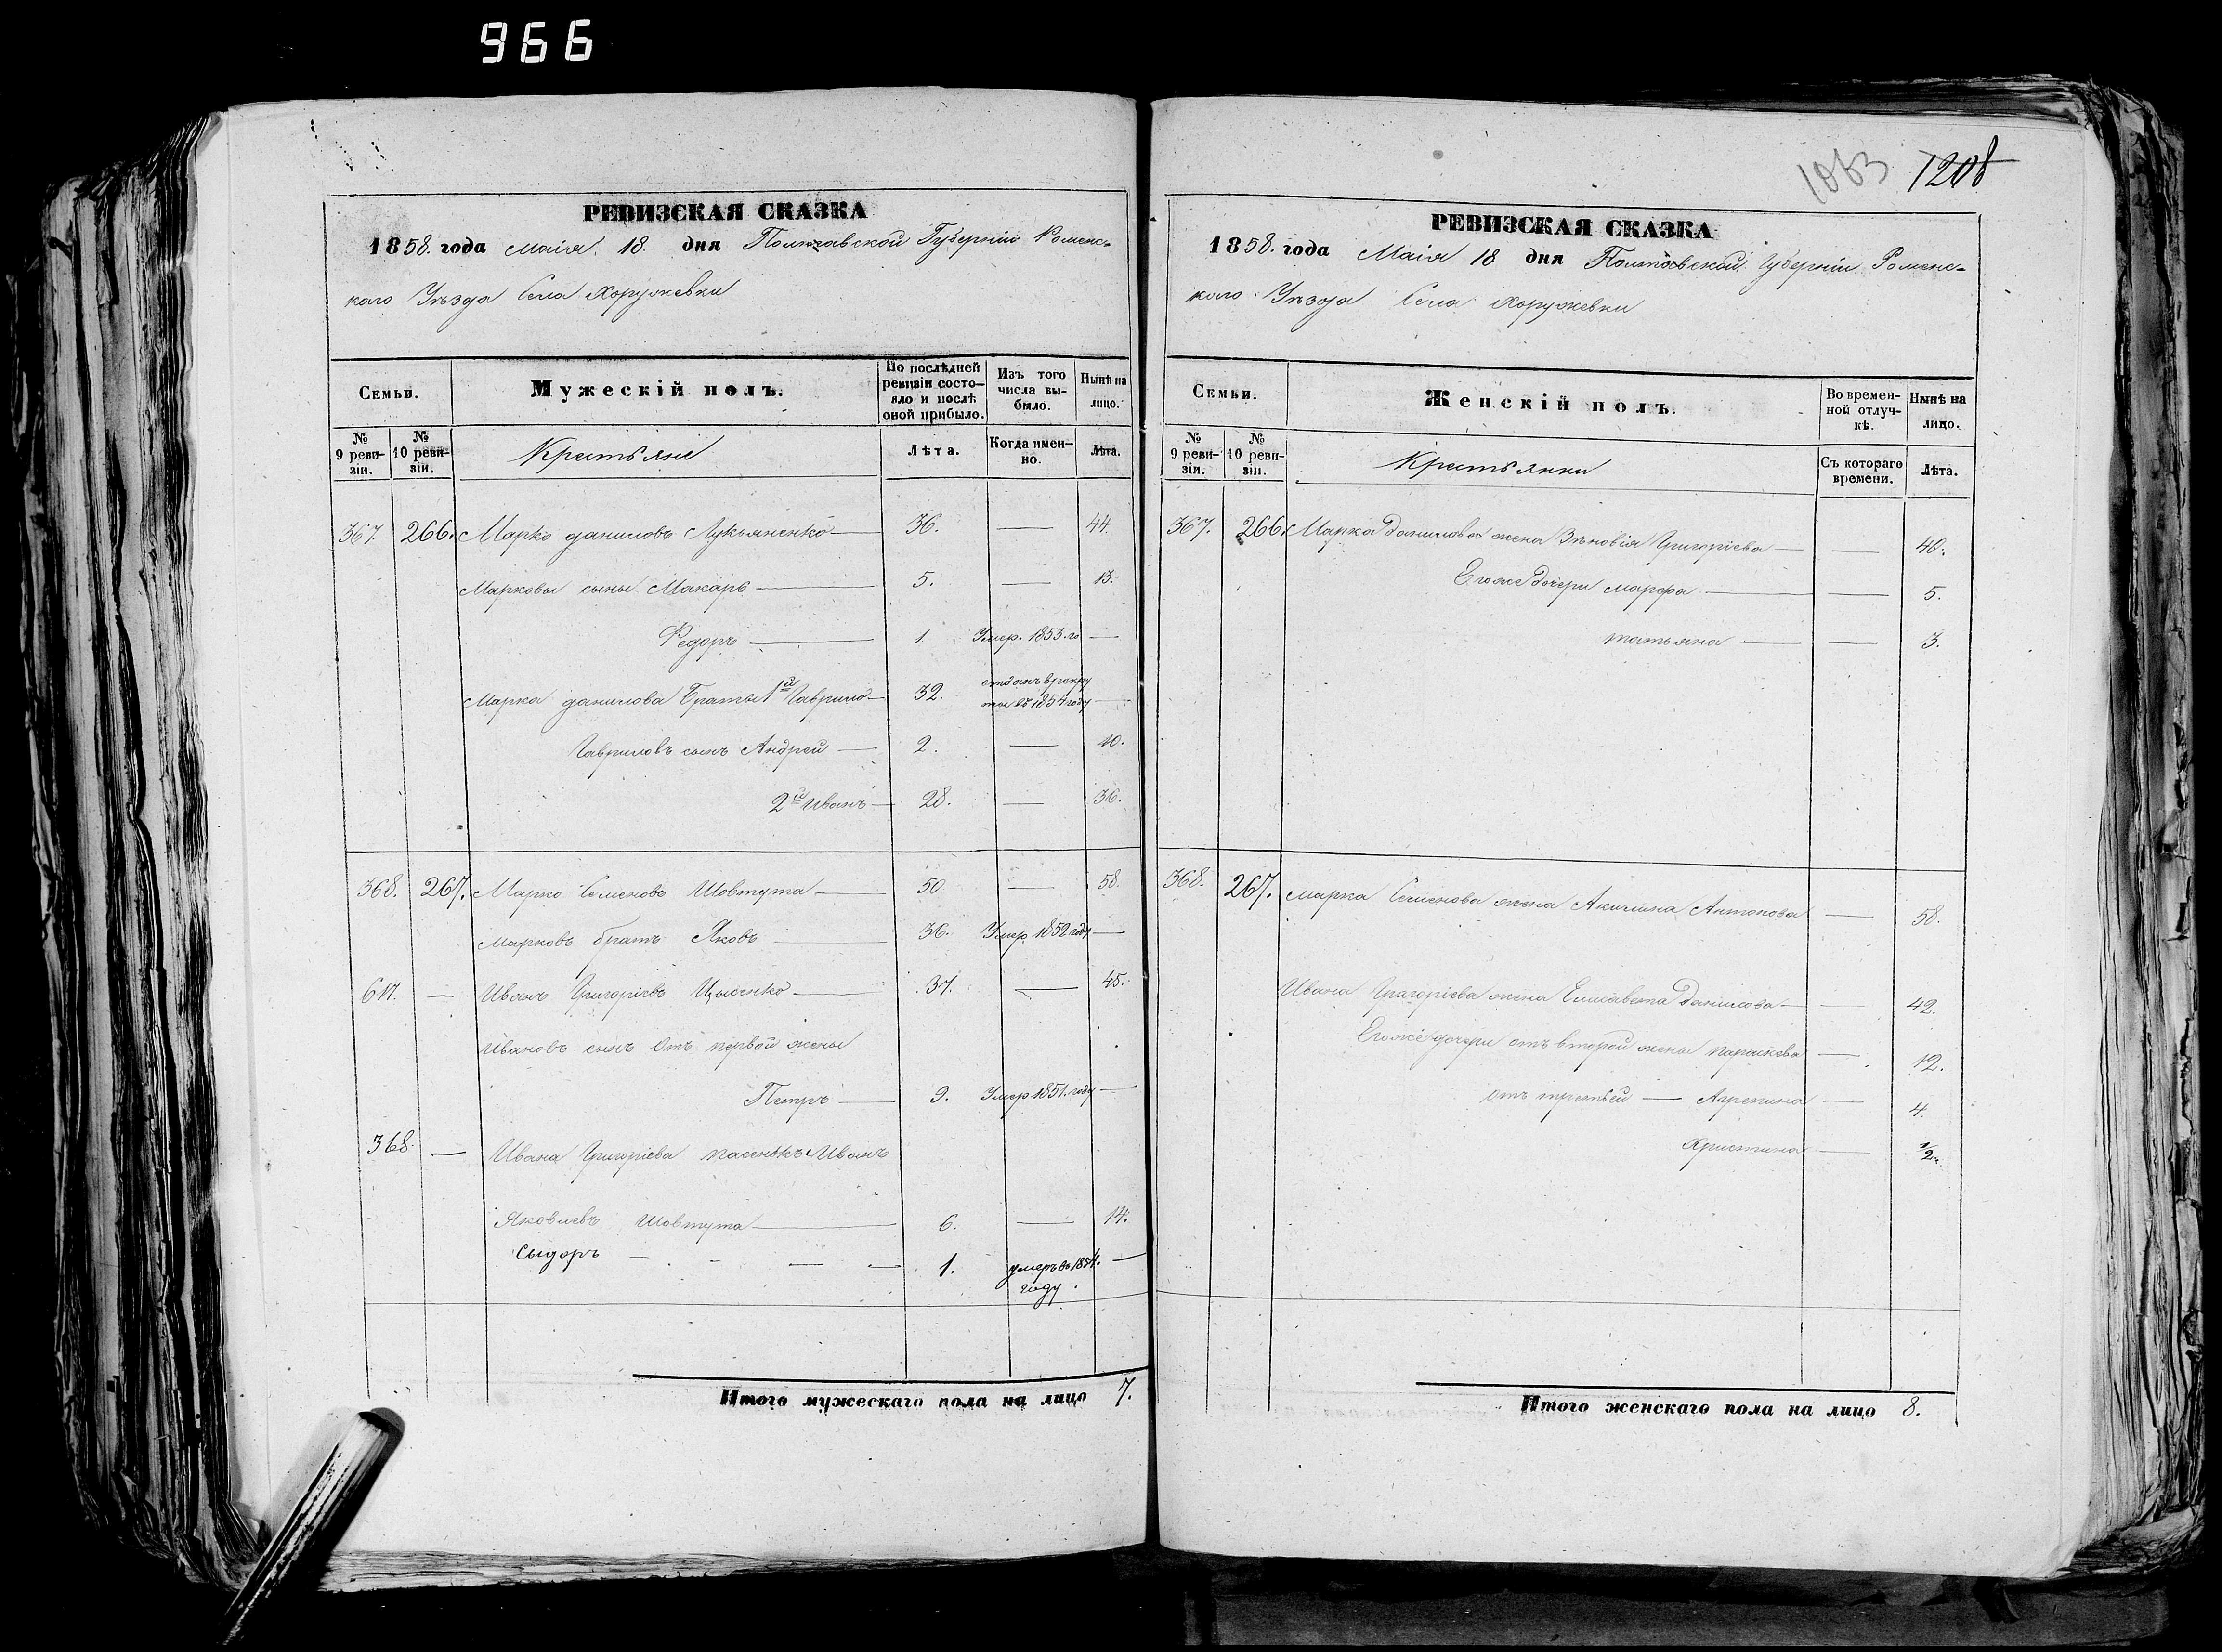 966
1063 1208
РЕВИЗСКАЯ СКАЗКА
1858. года Маія 18. дня Полтавской Губерніи Роменс-
каго Уѣзда Села Хоружевки
Семьи.
Мужескій полъ.
По послѣдней ревизіи состо-яло и послѣ оной прибыло.
Изъ того числа вы-было.
Нынѣ на лицо.
№ 9 реви-зіи.
№ 10 реви-зіи.
Крестьяне
Лѣта.
Когда имен-но.
Лѣта.
367. 266. Марко Даниловъ Лукьяненко — 36. — 44.
Марковы сыны Макаръ — 5. — 13.
Федоръ — 1. Умер. 1853. го —
Марка Данилова Братья 1й Гаврило — 32. отданъ в рекру
ты въ 1854 году —
Гавриловъ сынъ Андрей — 2. — 10.
2й Иванъ — 28. — 36.
368. 267. Марко Семеновъ Шовтута — 50. — 58.
Марковъ братъ Яковъ — 36. Умер 1852 году —
617. — Иванъ Григоріевъ Цысенко — 37. — 45.
Ивановъ сынъ отъ первой жены
Петръ — 9. Умер 1851. году —
368 — Ивана Григоріева пасенокъ Иванъ
Яковлевъ Шовтута — 6. — 14.
Сыдоръ — - — — 1. умеръ во 1854. —
году.
Итого мужескаго пола на лицо 7.
РЕВИЗСКАЯ СКАЗКА
1858. года Маія 18 дня Полтавской Губерніи Роменс-
каго Уѣзда Села Хоружевки
Семьи.
Женскій полъ.
Во времен-ной отлуч-кѣ.
Нынѣ на лицо.
№ 9 реви-зіи.
№ 10 реви-зіи.
Крестьянки
Съ котораго времени.
Лѣта.
367. 266. Марка Данилова жена Зѣновія Григоріева — — 40.
Его же дочери Марфа — — 5.
Татьяна — — 3.
368. 267. Марка Семенова жена Акилина Антонова — 58.
Ивана Григоріева жена Елисавета Данилова — — 42.
Его же дочери отъ второй жены Параскева — 12.
отъ третьей — Агрепина — 4.
Христина — 1/2.
Итого женскаго пола на лицо 8.